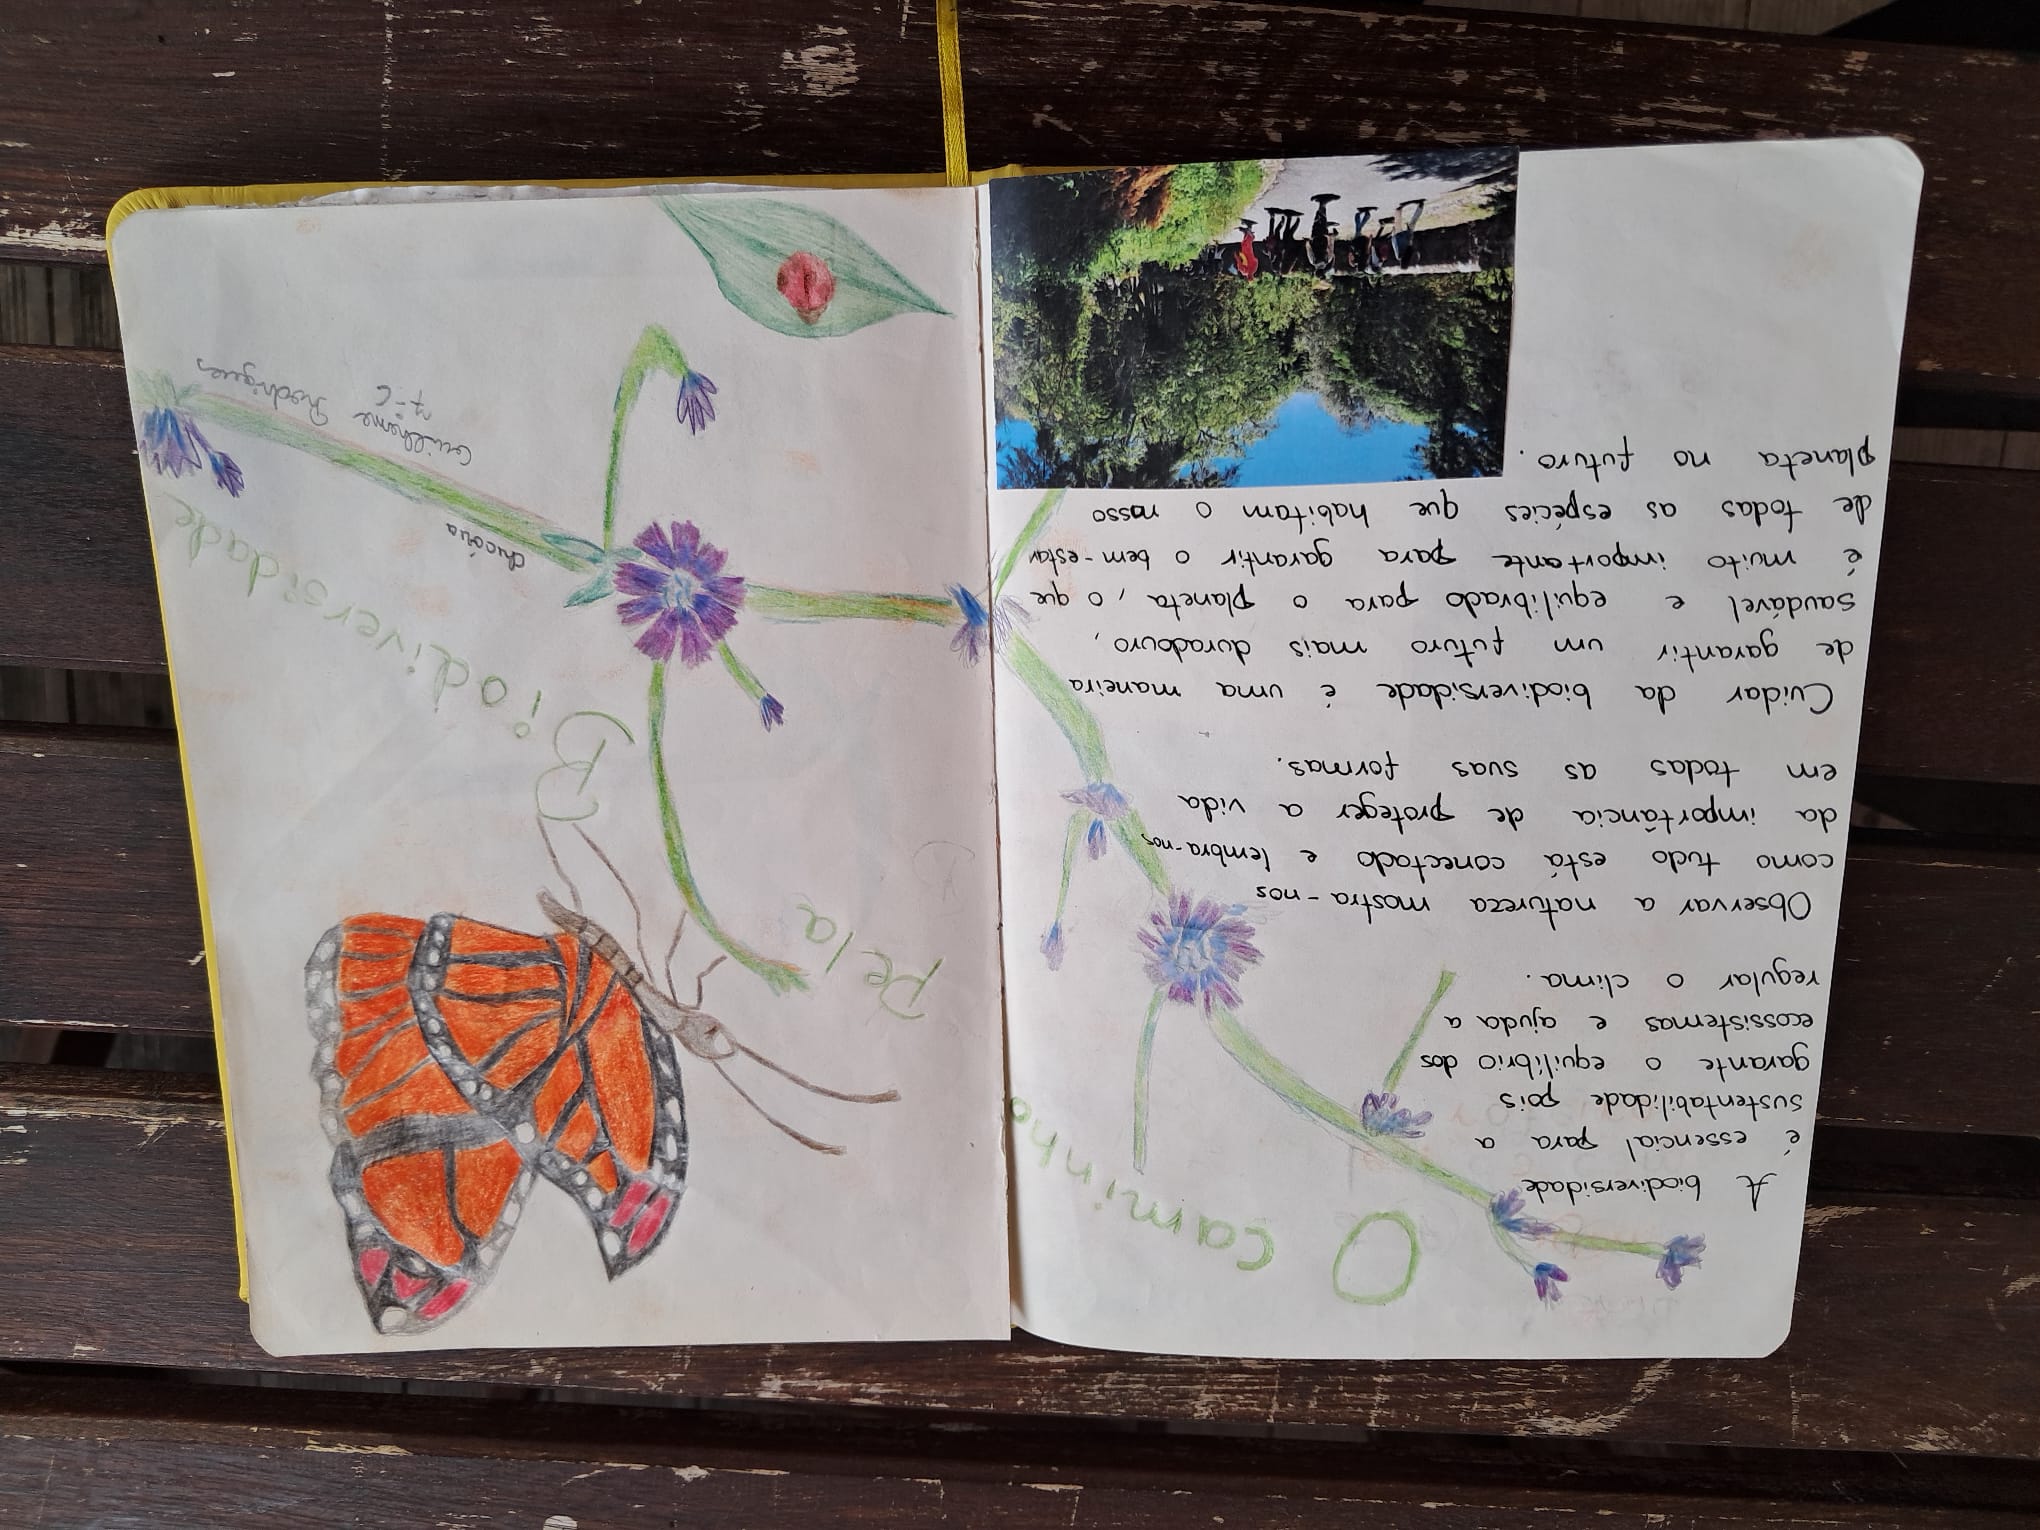 O caminho
Pela
Biodiversidade
A biodiversidade
é essencial para a
sustentabilidade pois
garante o equilíbrio dos
ecossistemas e ajuda a
regular o clima.
Observar a natureza mostra-nos
como tudo está conectado e lembra-nos
da importância de proteger a vida
em todas as suas formas.
Cuidar da biodiversidade é uma maneira
de garantir um futuro mais duradouro,
saudável e equilibrado para o planeta, o que
é muito importante para garantir o bem-estar
de todas as espécies que habitam o nosso
planeta no futuro.
chicória
Guilherme Rodrigues
7-C